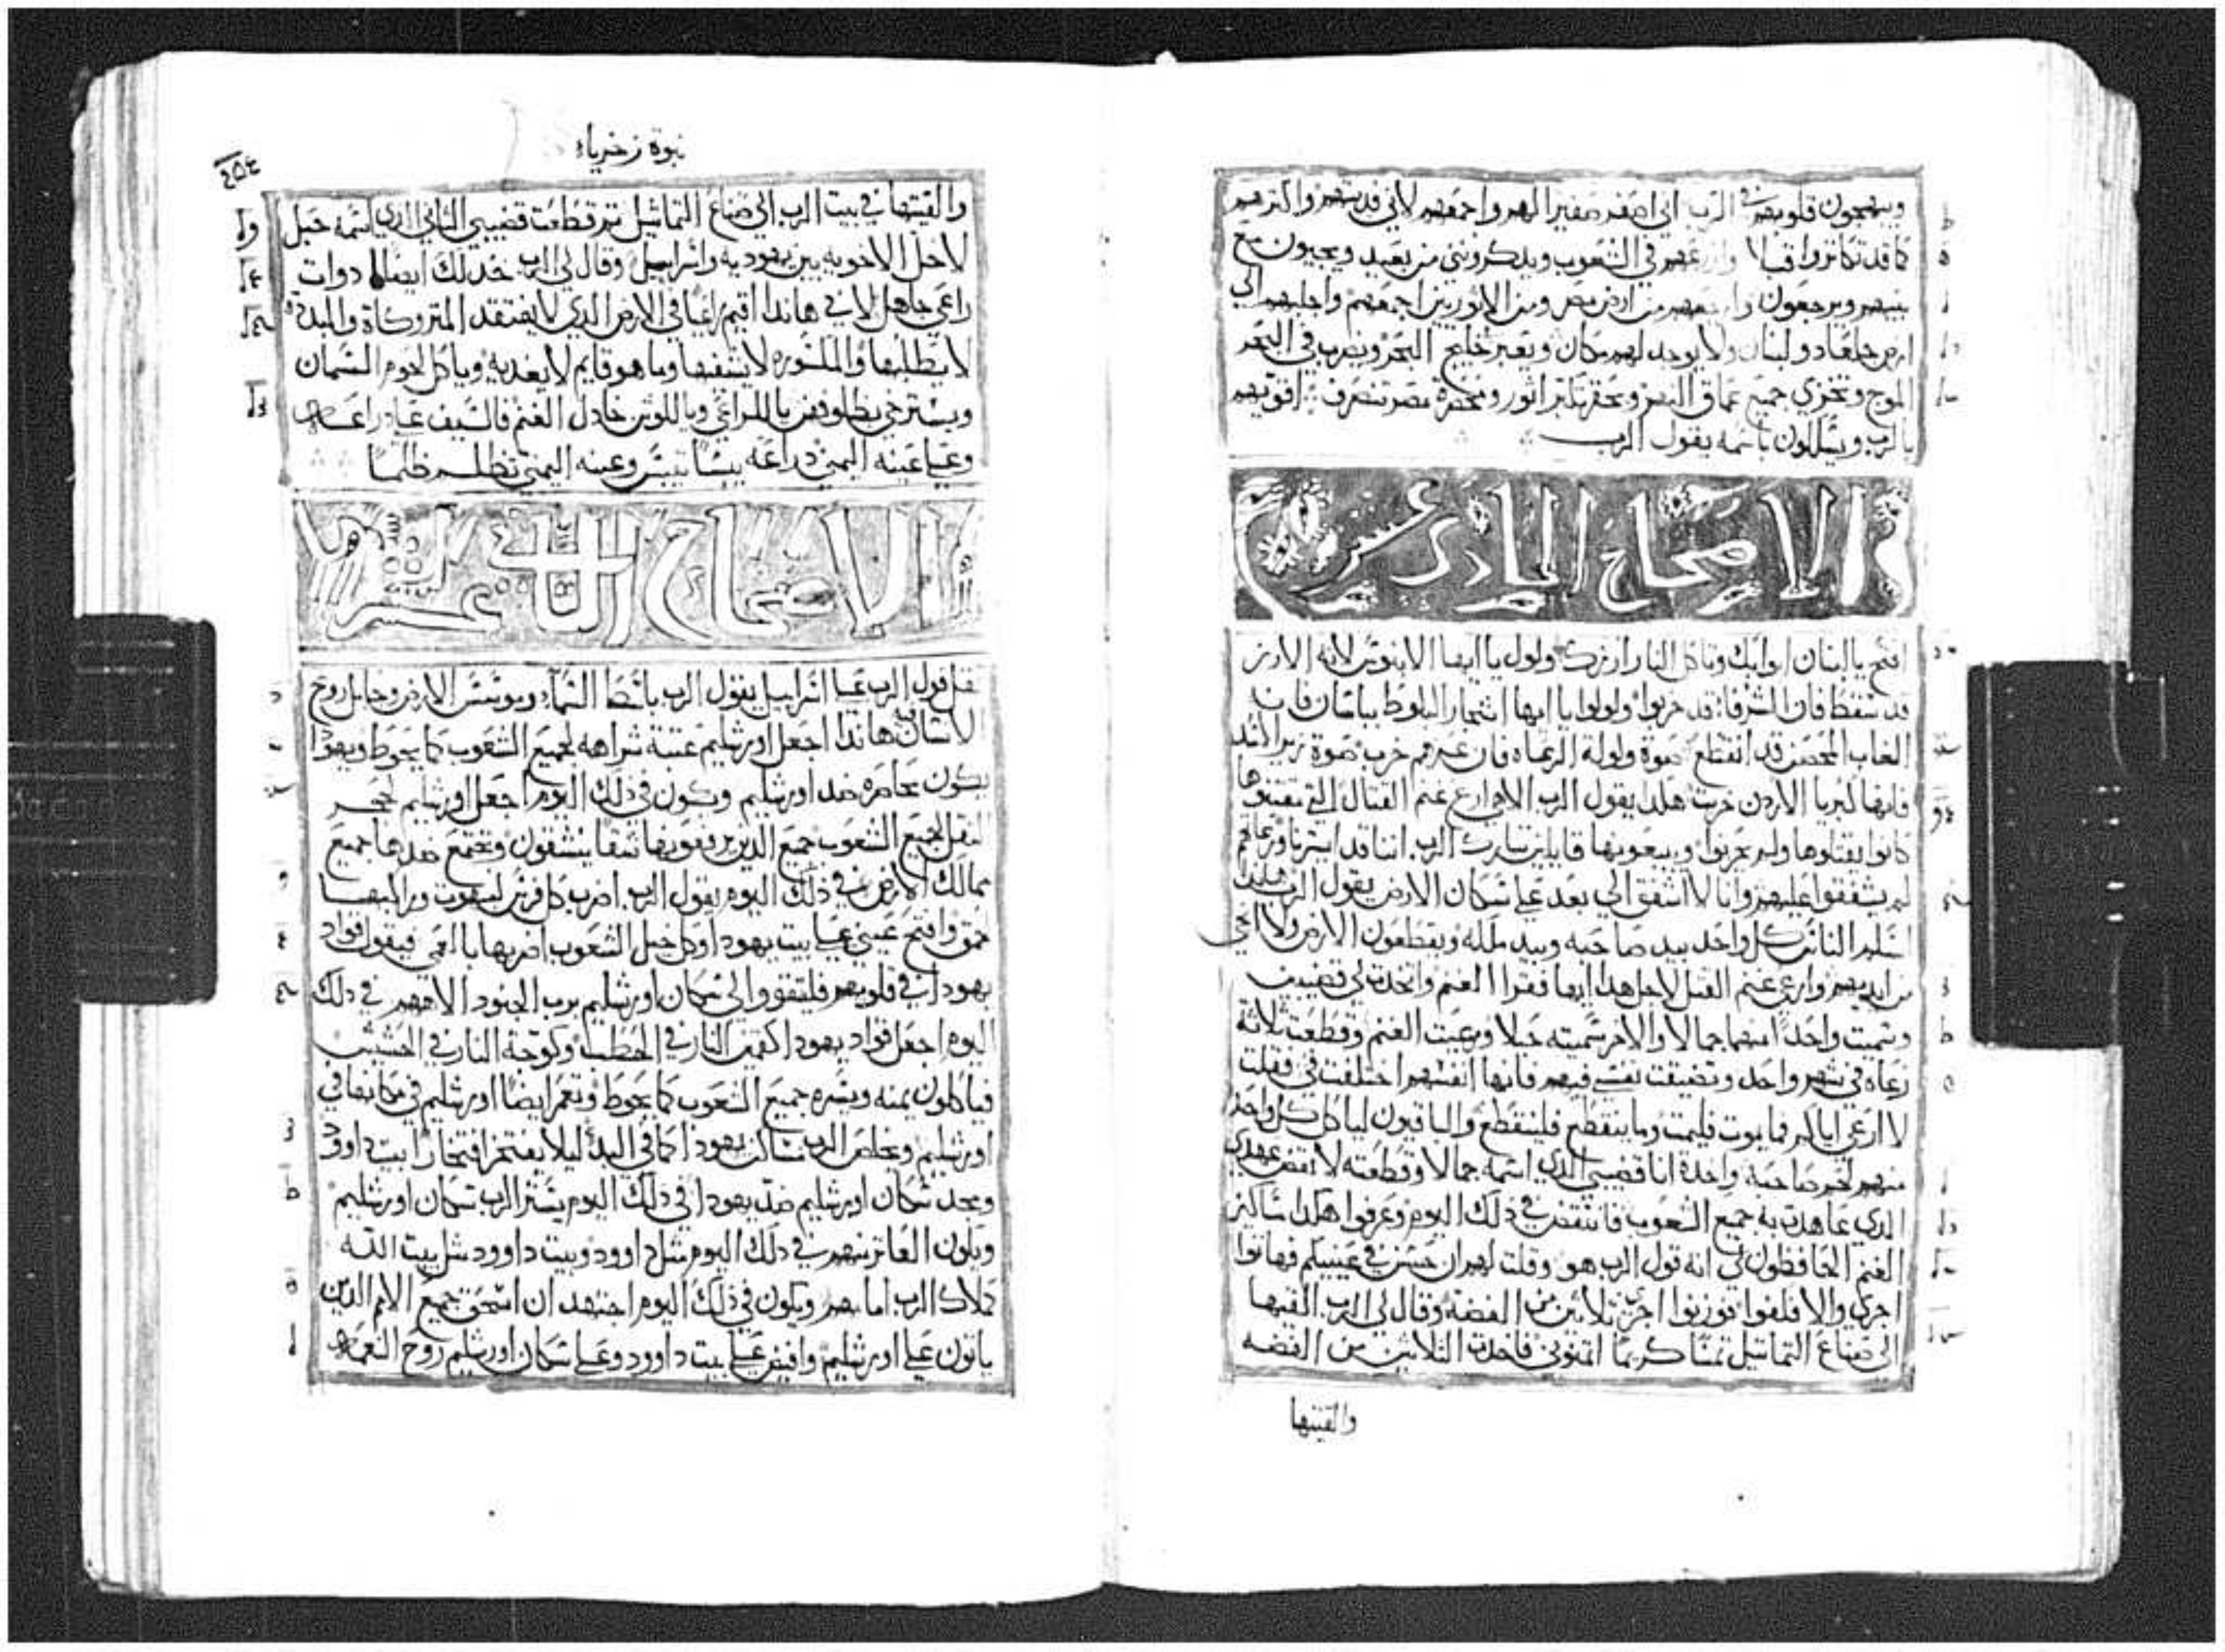 ويبتهجون قلوبهم في الرب اني اصفر صفيرا لهم واجمعهم لاني فديتهم واكثرهم
كما قد تكاثروا قبلا وازرعهم في الشعوب ويدكرونني من بعيد ويحيون مع
بنيهم ويرجعون وارجعهم من ارض مصر ومن الاثوريين اجمعهم واجلبهم الي
ارض جلعاد ولبنان ولا يوجد لهم مكان ويعبر خليج البحر ويضرب في البحر
الموج وتخزي جميع عماق النهر وتحقر تكبر اثور ومخصرة مصر تنصرف اقويهم
بالرب ويسلكون باسمه يقول الرب
الاصحاح الحادي عشر
افتح يا لبنان ابوابك وتاكل النار ارزك ولول يا ايها الابنوس لانه الارز
قد سقط فان الشرفا قد خربوا ولولوا يا ايها اشجار البلوط بباسان فان
الغاب المحصن قد انقطع صوة ولولة الرعاه فان عزهم خرب صوة زير الاسد
فانها كبريا الاردن خربت هكدا يقول الرب الاهي ارع غنم القتال التي مقتنوها
كانوا يقتلوها ولم يحزنوا ويبيعونها قايلين تبارك الرب اننا قد استرنا ورعاتهم
لم يشفقوا عليهم وانا لا اشفق الي بعد علي سكان الارض يقول الرب هاندا
اسلم الناس كل واحد بيد صاحبه وبيد ملكه ويقطعون الارض ولا انجي
من ايديهم وارعي غنم القتل لاجل هدا ايها فقرا الغنم واتخدت لي قضيبين
وسميت واحدا منهما جمالا والاخر سميته حبلا ورعيت الغنم وقطعت ثلاثة
رعاه في شهر واحد وتضيقت نفسي فيهم فانها انفسهم اختلفت في فقلت
لا ارعي اياكم فما يموت فليمت وما ينقطع فلينقطع والباقيون لياكل كل واحد
منهم لحم صاحبه واخدة انا قضيبي الدي اسمه جمالا وقطعته لانقض عهدي
الدي عاهدت به جميع الشعوب فانتقض في ذلك اليوم وعرفوا هكدا مساكين
الغنم الحافظون لي انه قول الرب هو وقلت لهم ان حسن في عينيكم فهاتوا
اجري والا فلفوا فوزنوا اجري ثلاثين من الفضة وقال لي الرب القيها
الي صناع التماثيل ثمنا كريما اثمنوني فاخدت الثلاثين من الفضه
والقيتها
نبوة زخرياء
والقيتها في بيت الرب الي صناع التماثيل ثم قطعت قضيبي الثاني الدي اسمه حبل
لاحل الاخويه بين يهوديه واسراييل وقال لي الرب خد لك ايضا ادوات
راعي جاهل لاني هاندا اقيم راعيا في الارض الدي لا يفتقد المتروكاة والمبددة
لا يطلبها والمكسوره لا يشفيها وما هو قايم لا يغديه وياكل لحوم السمان
ويسترخي بظلوفهن يا للراعي ويا للوثن خادل الغنم فالسيف علي دراعه
وعلي عينه اليمني دراعه يبسا تيبس وعينه اليمني تظلم ظلما
الاصحاح الثاني عشر
ثقل قول الرب علي اسراييل يقول الرب باسط السماء وموسس الارض وجابل روح
الانسان فيه هاندا اجعل اورشليم عتبة شراهه لجميع الشعوب كما يحوط ويهودا
يكون محاصره ضد اورشليم ويكون في ذلك اليوم اجعل اورشليم حجر
الثقل لجميع الشعوب جميع الدين يرفعونها شقا ينشقون وتجتمع ضدها جميع
ممالك الارض في ذلك اليوم يقول الرب اضرب كل فرس لبهوت وراكبها
لحمق وافتح عيني علي بيت يهودا وكل خيل الشعوب اضربها بالعمي فيقول قواد
يهودا في قلوبهم فليتقووا لي سكان اورشليم برب الجنود الاههم في ذلك
اليوم اجعل قواد يهودا كقمين النار في الحطب وكوجة النار في الحشيش
فياكلون يمنه ويسره جميع الشعوب كما يحوط وتعمر ايضا اورشليم في مكانها في
اورشليم ويخلص الرب مساكن يهودا كما في البدئ ليلا يفتخر افتخارا بيت داوود
ومجد سكان اورشليم ضد يهودا في ذلك اليوم يستر الرب سكان اورشليم
ويكون العاثر منهم في ذلك اليوم مثل داوود وبيت داوود مثل بيت الله
كملاك الرب امامهم ويكون في ذلك اليوم اجتهد ان اسحق جميع الامم الدين
ياتون علي اورشليم وافيض علي بيت داوود وعلي سكان اورشليم روح النعمه